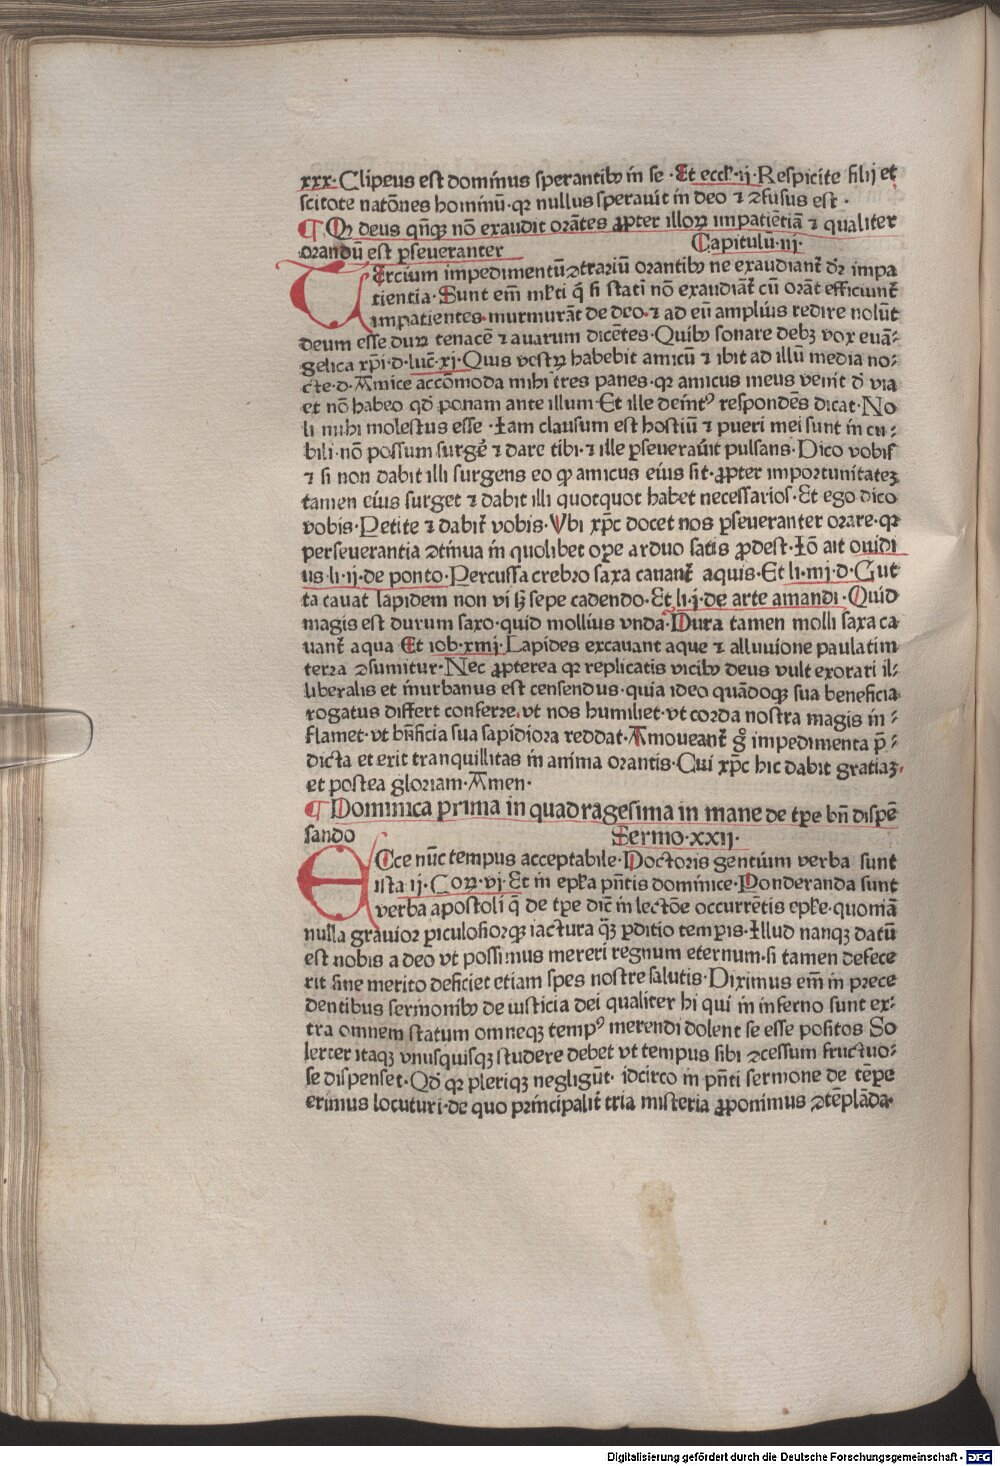 xxx·Clipeus est dominus sperantibꝰ in se ·Et eccḱ·ij·Respicite filij et
scitote natōnes hominū·qꝛ nullus sperauit in deo ⁊ ꝯfusus est·
¶ Qꝙ deus qn̄qꝫ nō exaudit orātes ꝓpter illoꝝ impatiētiā ⁊ qualiter
orandū est ꝑseueranter Capitulū·iij·
TErcium impedimentū ꝯtrariū orantibꝰ ne exaudiant̄ dꝛ̄ impa
tientia·Sunt em̄ ml̓ti q̄ si stati nō exaudiāt̄ cū orāt efficiunt̄
impatientes·murmurāt de deo·⁊ ad eū amplius redire nolūt
deum esse duꝝ tenacē ⁊ auarum dicētes·Quibꝰ sonare debꝫ vox euā⸗
gelica xp̄i·d·luc̄·xj·Quis vestꝝ habebit amicū ⁊ ibit ad illū media no⸗
cte·d·Amice accōmoda mihi tres panes·qꝛ amicus meus venit d̄ via
et nō habeo qd̓ ponam ante illum·Et ille deint⁹ respondēs dicat·No
li mihi molestus esse ·Iam clausum est hostiū ⁊ pueri mei sunt in cu⸗
bili·nō possum surge᷑ ⁊ dare tibi·⁊ ille ꝑseuerauit pulsans·Dico vobis
⁊ si non dabit illi surgens eo ꝙ amicus eius sit·ꝓpter importunitatez
tamen eius surget ⁊ dabit illi quotquot habet necessarios·Et ego dico
vobis·Petite ⁊ dabit̄ vobis·Vbi xp̄c docet nos ꝑseueranter orare·qꝛ
perseuerantia ꝯtinua in quolibet oꝑe arduo satis ꝓdest·Iō ait ouidi
us·li·ij·de ponto·Percussa crebro saxa cauant̄ aquis·Et li·iiij·d·Gut
ta cauat lapidem non vi sꝫ sepe cadendo·Et li·j·de arte amandi·Quid
magis est durum saxo·quid mollius vnda·Dura tamen molli saxa ca
uant̄ aqua Et iob·xiiij·Lapides excauant aque ⁊ alluuione paulatim
terra ꝯsumitur·Nec ꝓpterea qꝛ replicatis vicibꝰ deus vult exorari il⸗
liberalis et inurbanus est censendus·quia ideo quādoqꝫ sua beneficia
rogatus differt conferre·vt nos humiliet·vt corda nostra magis in⸗
flamet·vt bn̄ficia sua sapidiora reddat·Amoueant̄ gͦ impedimenta p̄⸗
dicta et erit tranquillitas in anima orantis·Cui xp̄c hic dabit gratiaz·
et postea gloriam·Amen·
¶ Dominica prima in quadragesima in mane de tꝑe bn̄ dispē
sando Sermo·xxij·
ECce nūc tempus acceptabile·Doctoris gentium verba sunt
ista ij·Coꝝ·vj·Et in epl̓a pn̄tis dominice·Ponderanda sunt
verba apostoli q̄ de tꝑe dic̄ in lectōe occurrētis epl̓e·quoniā
nulla grauior ꝑiculosiorqꝫ iactura qꝫ̄ ꝑditio temꝑis·Illud nanqꝫ datū
est nobis a deo vt possimus mereri regnum eternum·si tamen defece
rit sine merito deficiet etiam spes nostre salutis·Diximus em̄ in prece
dentibus sermonibꝰ de iusticia dei qualiter hi qui in inferno sunt ex⸗
tra omnem statum omneqꝫ temp⁹ merendi dolent se esse positos So
lerter itaqꝫ vnusquisqꝫ studere debet vt tempus sibi ꝯcessum fructuo⸗
se dispenset·Qd̓ qꝛ pleriqꝫ negligūt· idcirco in pn̄ti sermone de tēpe
erimus locuturi·de quo principalit̄ tria misteria ꝓponimus ꝯtēplāda·
Digitalisierung gefördert durch die Deutsche Forschungsgemeinschaft - DFG